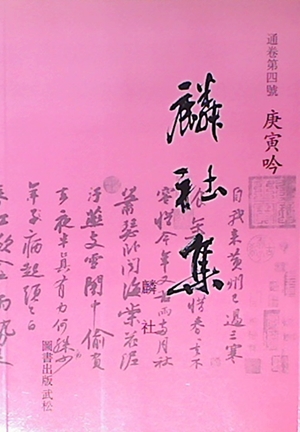 通卷第四號
庚寅吟
麟社集
自我来黃州已過三寒
容惜今年又苦雨兩月秋
蕭瑟卧聞海棠花泥
汙燕支雪闇中偷負
去夜半真有力何殊少
年子病起頭已
麟社
圖書出版 武松